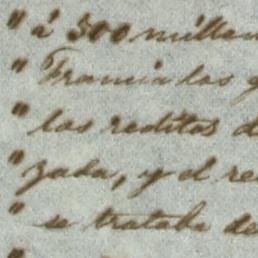 " á 300 millon
" Francia las g
" los reditos d
" zada, y el re
" se trataba de
"